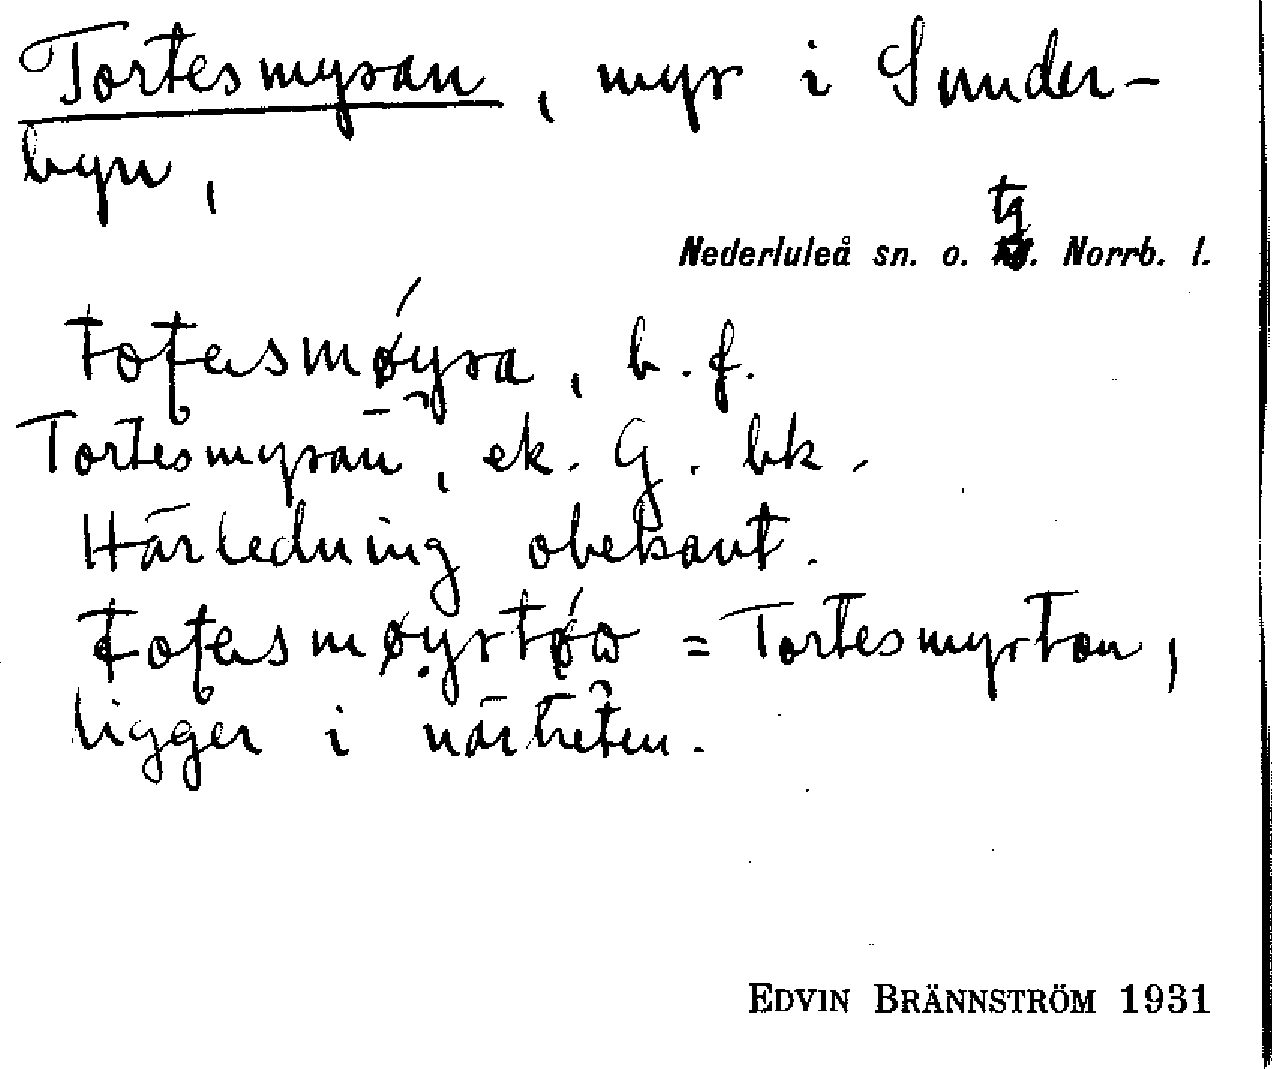 Tortesmyran, myr i Sunder-
byn,
tg
Nederluleå sn. o. Norrb. l.
b. f.
Tortesmyran, ek. G. bk.
Härledning obekant.
= Tortesmyrtan,
ligger i närheten.
EDVIN BRÄNNSTRÖM 1931